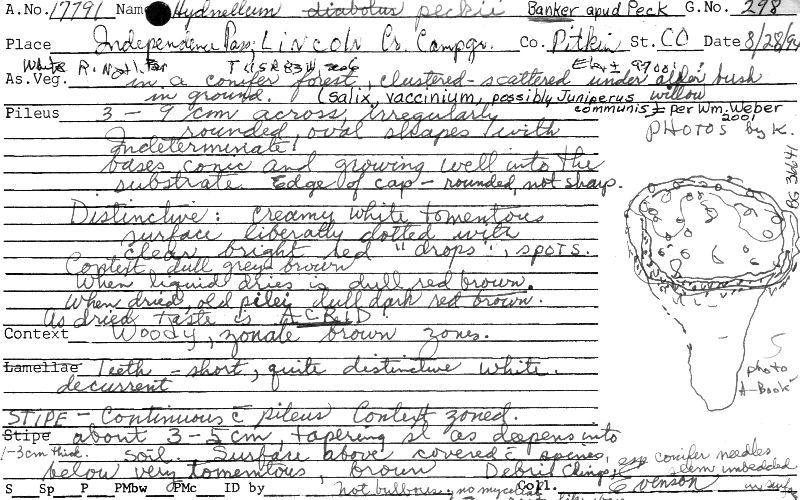 A.No. 17791 Name Hydnellum diabolus peckii Banker apud Peck G.No. 298
Place Independence Pass, Lincoln Cr. Campgr. Co. Pitkin St. CO Date 8/28/94
White R. Natl. For. T11S R83W Elev ± 9900'
As.Veg. in a conifer forest, clustered-scattered under alder bush
in ground. (salix, vaccinium, possibly Juniperus willow
communis ± per Wm. Weber
2001
Pileus 3 - 9 cm across, irregularly
PHOTOS by K.
rounded, oval shapes with
Indeterminate!
bases conic and growing well into the
substrate. Edge of cap - rounded, not sharp.
BG 36641
Distinctive: creamy white tomentous
surface liberally dotted with
clear bright red "drops", spots.
Context dull grey brown
When liquid dries is dull red brown.
When dried, old pilei dull dark red brown.
As dried taste is ACRID
Context Woody, zonate brown zones.
Lamellae Teeth - short, quite distinctive white.
decurrent
photo
A-Book
STIPE - Continuous c̄ pileus Context zoned.
Stipe about 3-5 cm, tapering sl as deepens into
1-3cm thick. soil. Surface above covered c̄ spines, esp conifer needles
below very tomentous, brown Debris clings seem imbedded
S Sp P PMbw PMc ID by Coll. Evenson
not bulbous, no mycelial